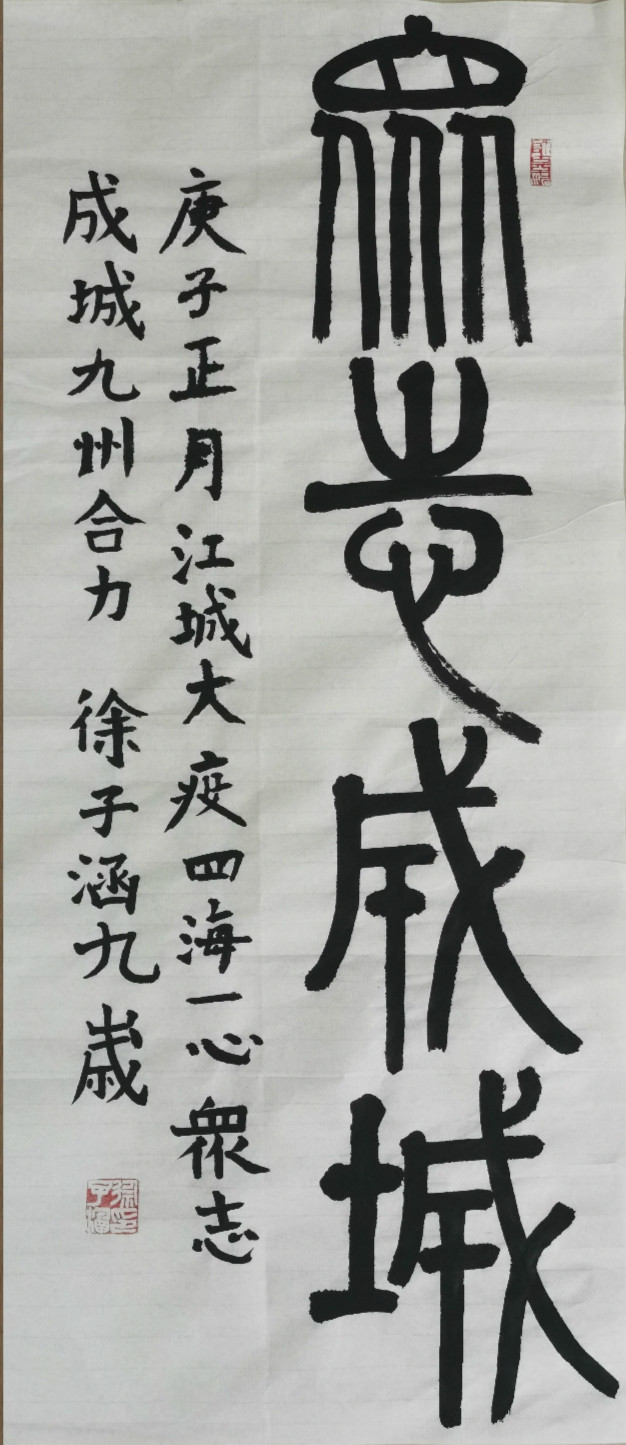 眾志成城
庚子正月江城大疫四海一心眾志
成城九州合力 徐子涵九歲
徐子涵印